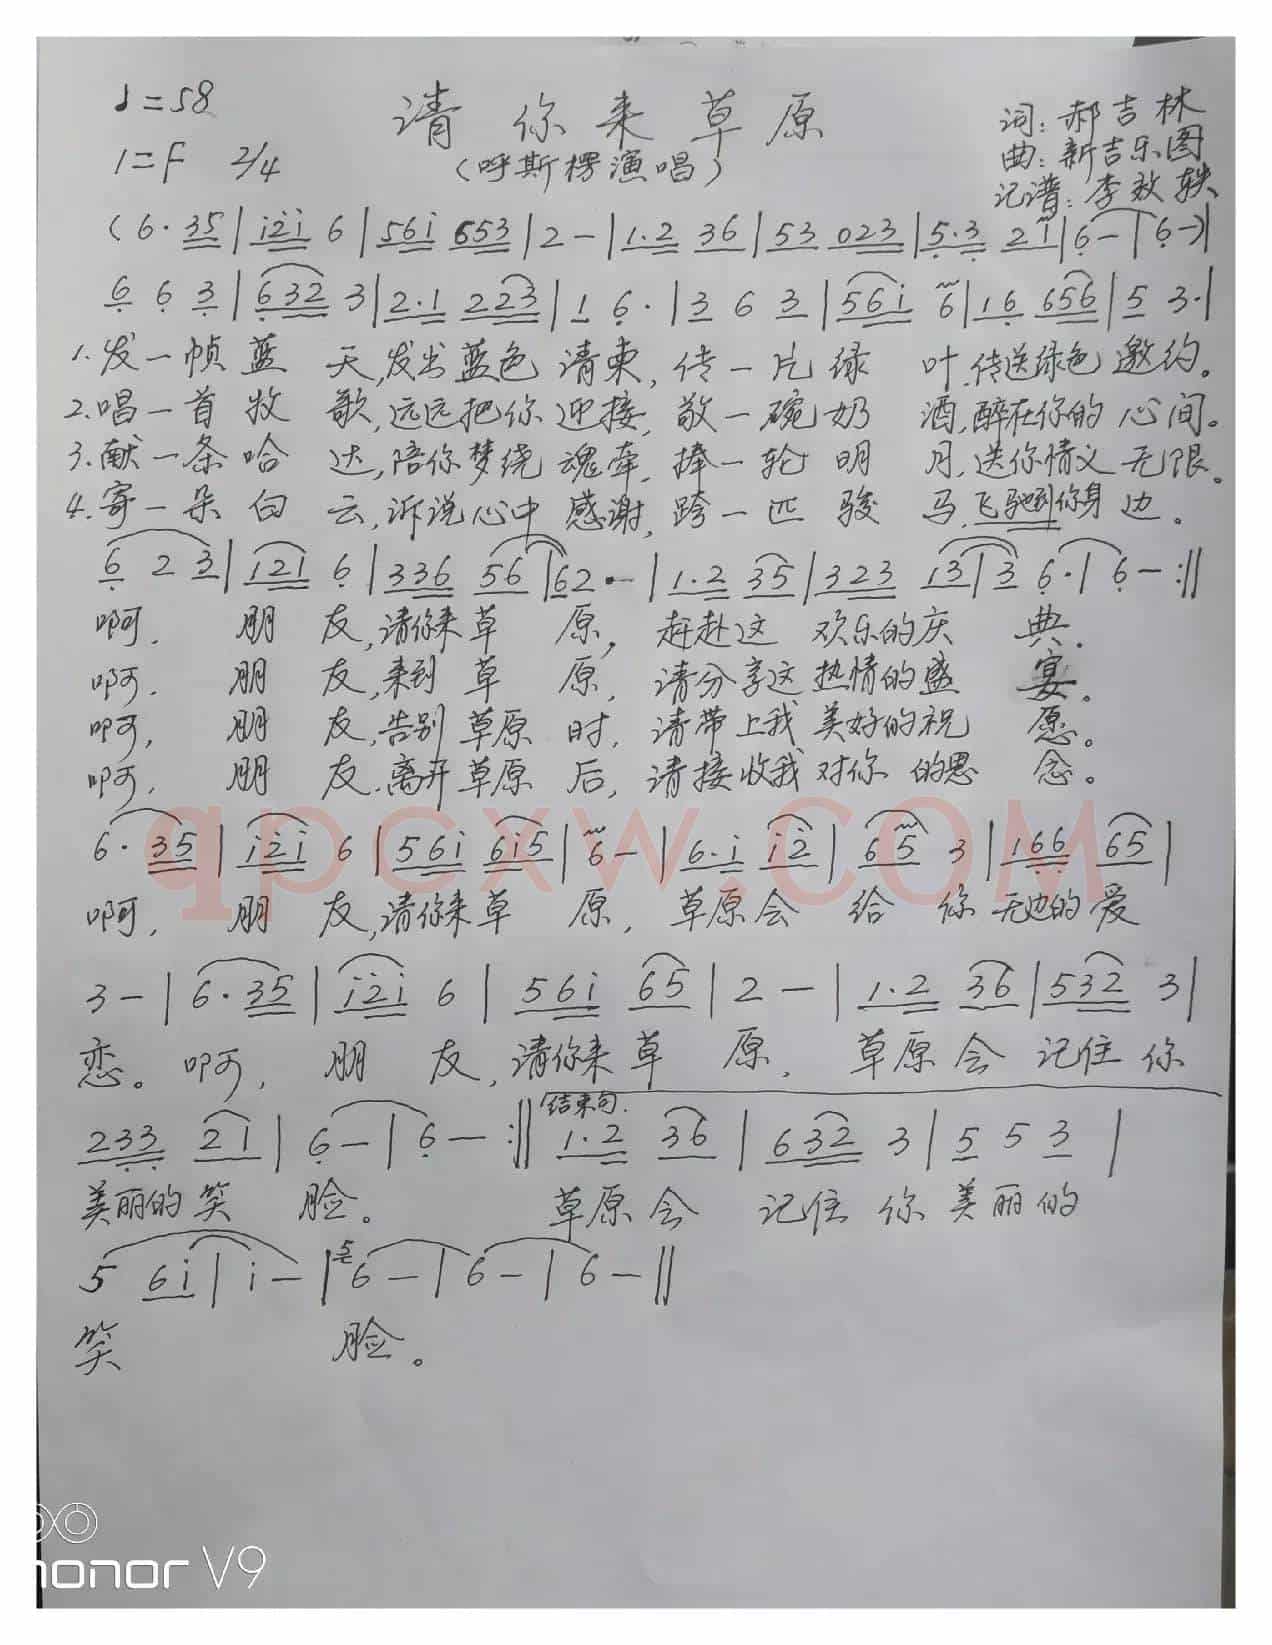 ♩=58
请你来草原
词:郝吉林
1=F 2/4
(呼斯楞演唱)
曲:新吉乐图
记谱:李效轶
(6· 35|i2i 6|56i 653|2 -|1·2 36|53 023|5·3 21|6 -|6 -)|
6 6 3|632 3|2·1 223|1 6·|3 6 3|56i 6|16 656|5 3·|
1.发一帧蓝天,发出蓝色请柬,传一片绿叶,传送绿色邀约。
2.唱一首牧歌,远远把你迎接,敬一碗奶酒,醉在你的心间。
3.献一条哈达,陪你梦绕魂牵,捧一轮明月,送你情义无限。
4.寄一朵白云,诉说心中感谢,跨一匹骏马,飞驰到你身边。
6 2 3|121 6|336 56|62· -|1·2 35|323 13|3 6·|6 - :||
啊,朋友,请你来草原,赶赴这欢乐的庆典.
啊,朋友,来到草原,请分享这热情的盛宴。
啊,朋友,告别草原时,请带上我美好的祝愿。
啊,朋友,离开草原后,请接收我对你的思念。
qpcxw.com
6· 35|i2i 6|56i 6i5|6 -|6·i i2|65 3|166 65|
啊,朋友,请你来草原,草原会给你无边的爱
3 -|6·35|i2i 6|56i 65|2 -|1·2 36|532 3|
恋。啊,朋友,请你来草原,草原会记住你
233 21|6 -|6 - :|| 结束句. 1·2 36|632 3|5 5 3|
美丽的笑脸。草原会记住你美丽的
5 6i|i -|5 6 -|6 -|6 -||
笑脸。
honor V9